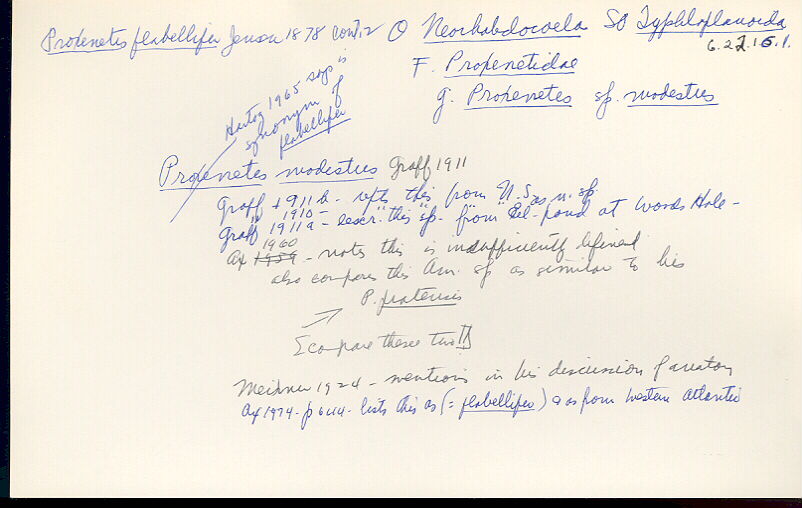 Proxenetes flabellifer Jensen 1878 cont. 2 O Neorhabdocoela SO Typhloplanoida
6.22.16.1.
F. Proxenetidae
g. Proxenetes sp. modestus
Hartog 1965 says is
synonym of
flabellifer
Proxenetes modestus Graff 1911
Graff 1911b - repts this from U.S. as n. sp.
1910 -
Graff 1911a - descr. "this" sp. "from" Eel-pond at Woods Hole -
1960
Ax 1959 - notes this is insufficiently defined
also compares this Am. sp as similar to his
P. pratensis
[compare these two!!]
Meixner 1924 - mentions in his discussion of anatomy
Ax 1974 - p 644 - lists this as (= flabellifer) & as from Western Atlantic